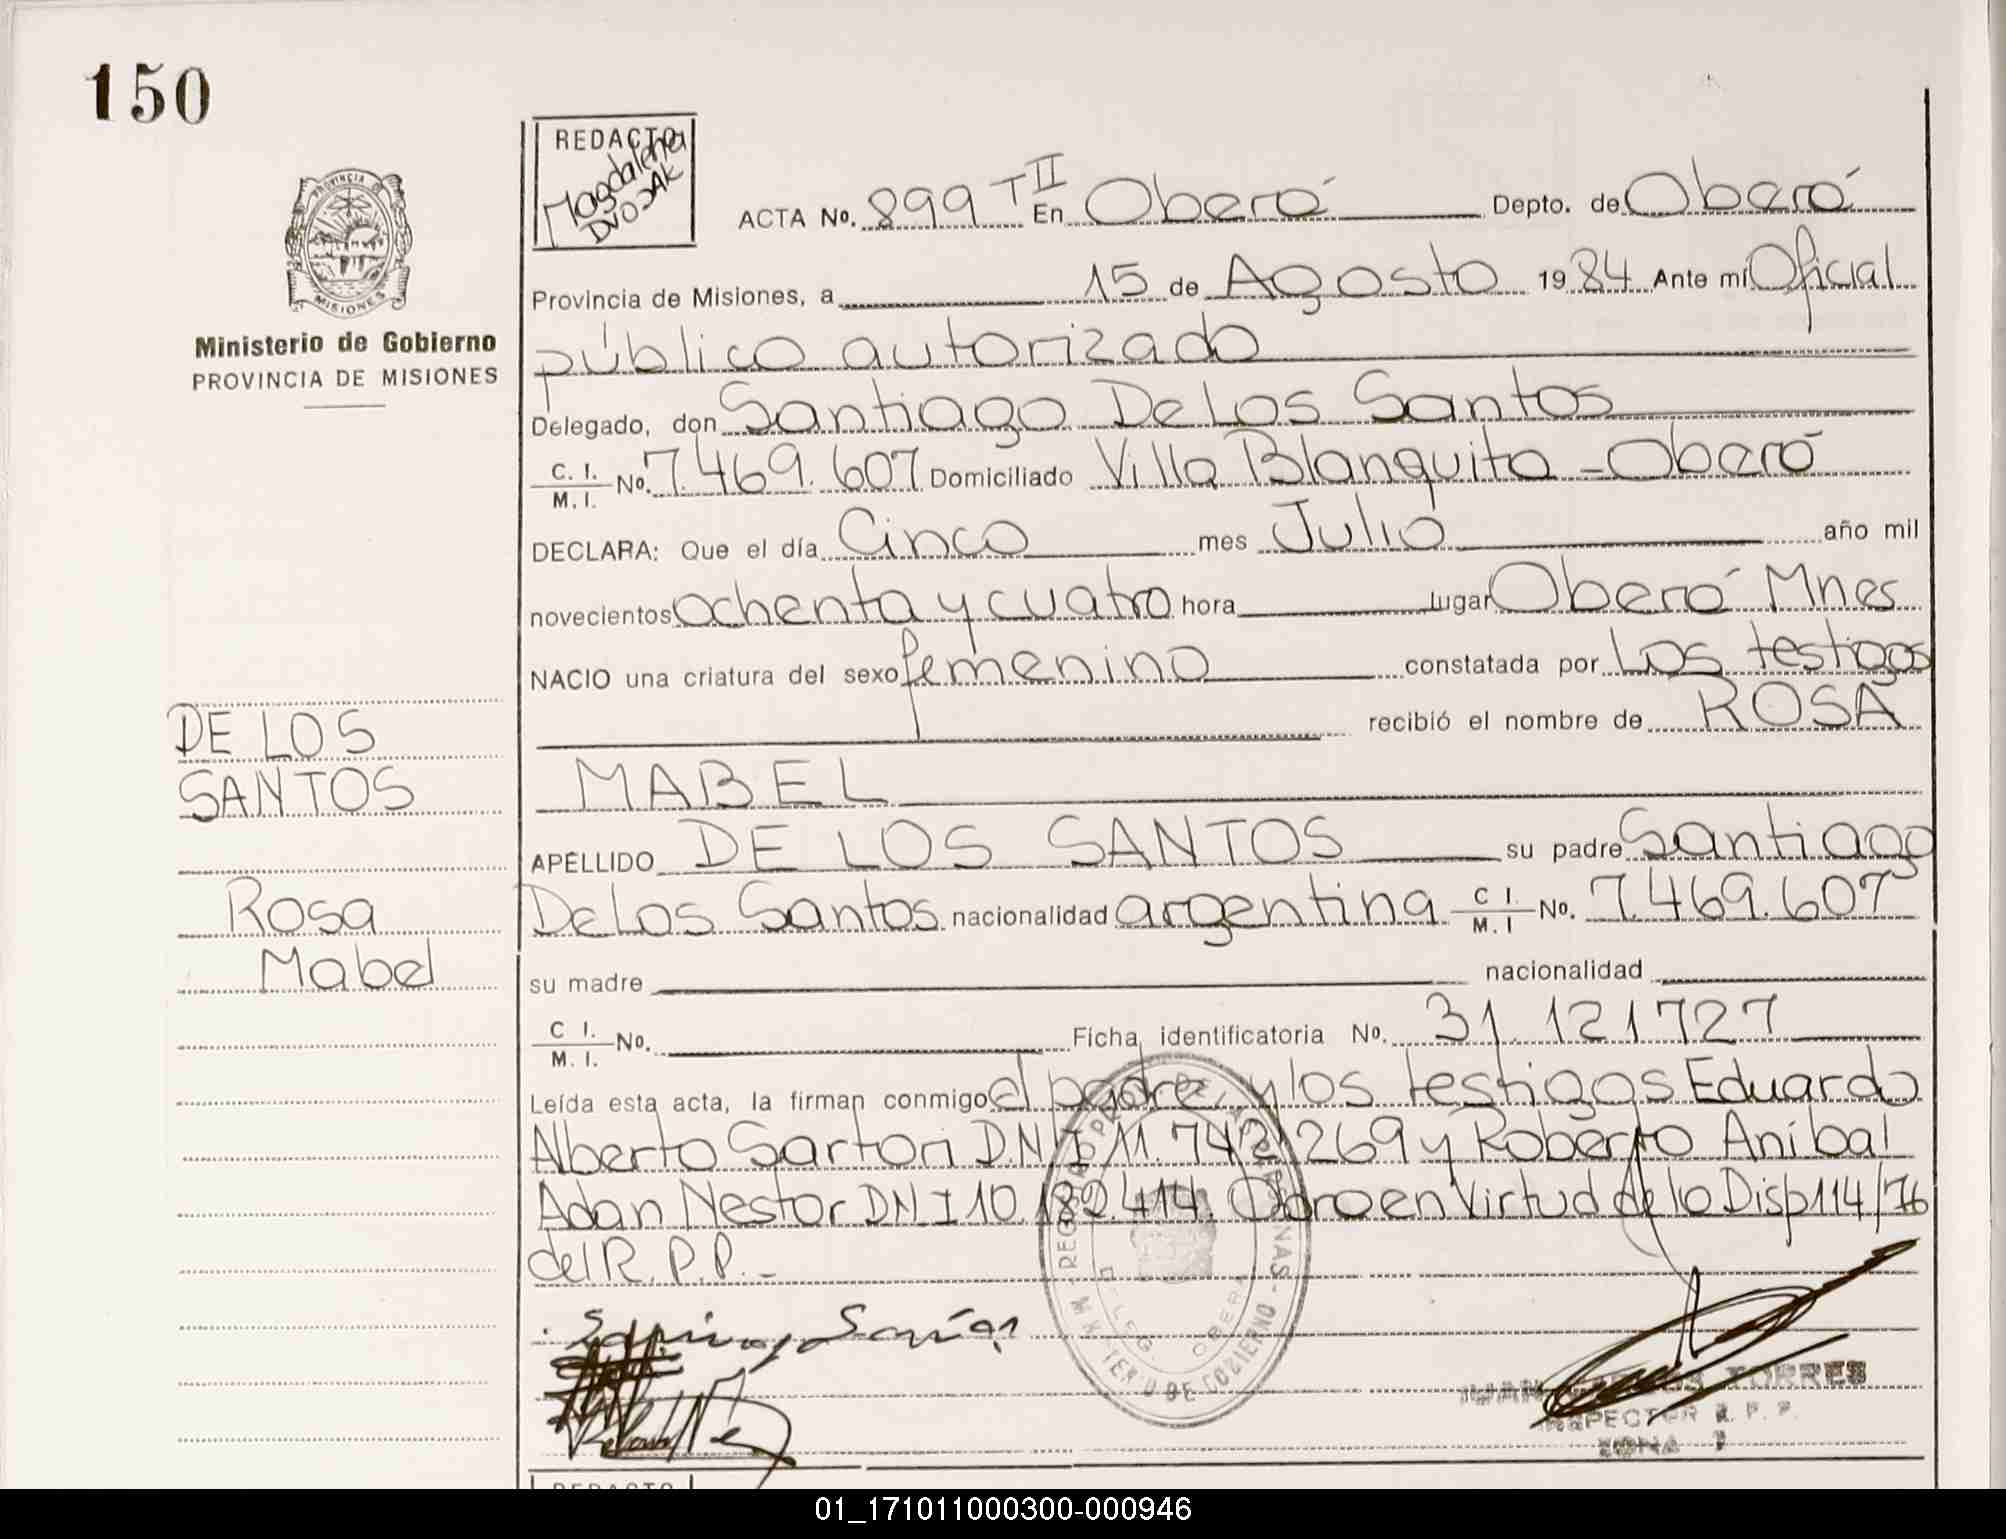 150
REDACTO
Magdalena
DVOJAK
PROVINCIA DE
MISIONES
Ministerio de Gobierno
PROVINCIA DE MISIONES
ACTA No. 899 T II En Oberá Depto. de Oberá
Provincia de Misiones, a 15 de Agosto 1984 Ante mí Oficial
público autorizado
Delegado, don Santiago De Los Santos
C. I. M. I. No. 7.469.607 Domiciliado Villa Blanquita - Oberá
DECLARA: Que el día Cinco mes Julio año mil
novecientos ochenta y cuatro hora lugar Oberá Mnes
NACIO una criatura del sexo femenino constatada por Los testigos
recibió el nombre de ROSA
MABEL
APELLIDO DE LOS SANTOS su padre Santiago
De Los Santos nacionalidad argentina C I. M. I No. 7.469.607
su madre nacionalidad
C I. M. I. No. Ficha identificatoria No. 31.121727
Leída esta acta, la firman conmigo el padre y los testigos Eduardo
Alberto Sartori D.N.I 11.742.269 y Roberto Aníbal
Adan Nestor DNI 10.182.414. Obro en Virtud de lo Disp 114/76
del R. P. P. -
DE LOS
SANTOS
Rosa
Mabel
MINISTERIO DE GOBIERNO
DELEG. OBERA
TORRES
INSPECTOR R. P. P.
ZONA
REDACTO
01_171011000300-000946